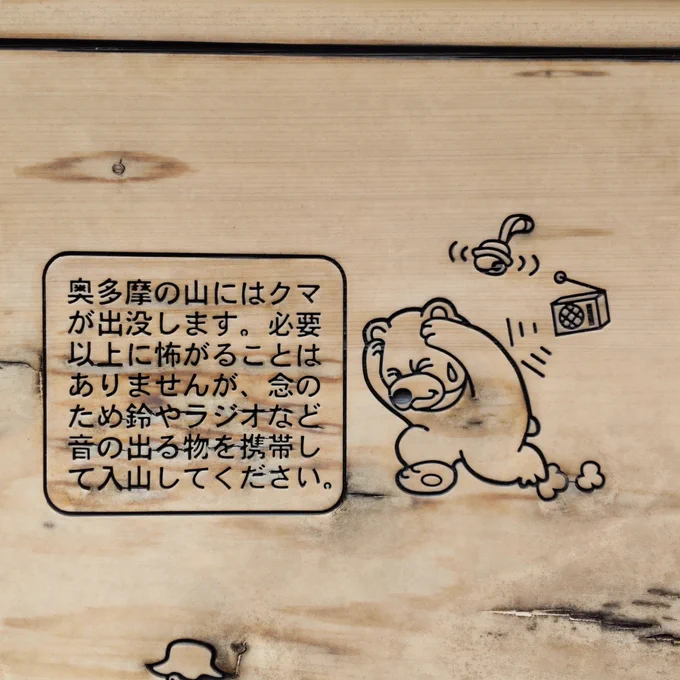 奥多摩の山にはクマ
が出没します。必要
以上に怖がることは
ありませんが、念の
ため鈴やラジオなど
音の出る物を携帯し
て入山してください。